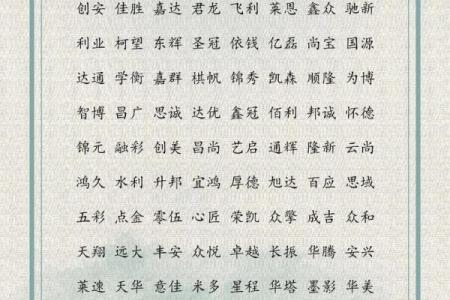 创安 佳胜 嘉达 君龙 飞利 莱恩 鑫众 驰新
利业 柯望 东辉 圣冠 依钱 亿磊 尚宝 国源
达通 学衡 嘉群 棋帆 锦秀 凯森 顺隆 为博
智博 昌广 思诚 达优 鑫冠 佰利 邦诚 怀德
锦元 融彩 创美 昌尚 艺启 通辉 隆新 云尚
鸿久 水利 升邦 宜鸿 厚德 旭达 百应 思域
五彩 点金 零伍 心匠 荣凯 众擎 成吉 众和
天翔 远大 丰安 众悦 卓越 长振 华腾 安兴
莱速 天华 意佳 米多 星程 华塔 墨影 华美